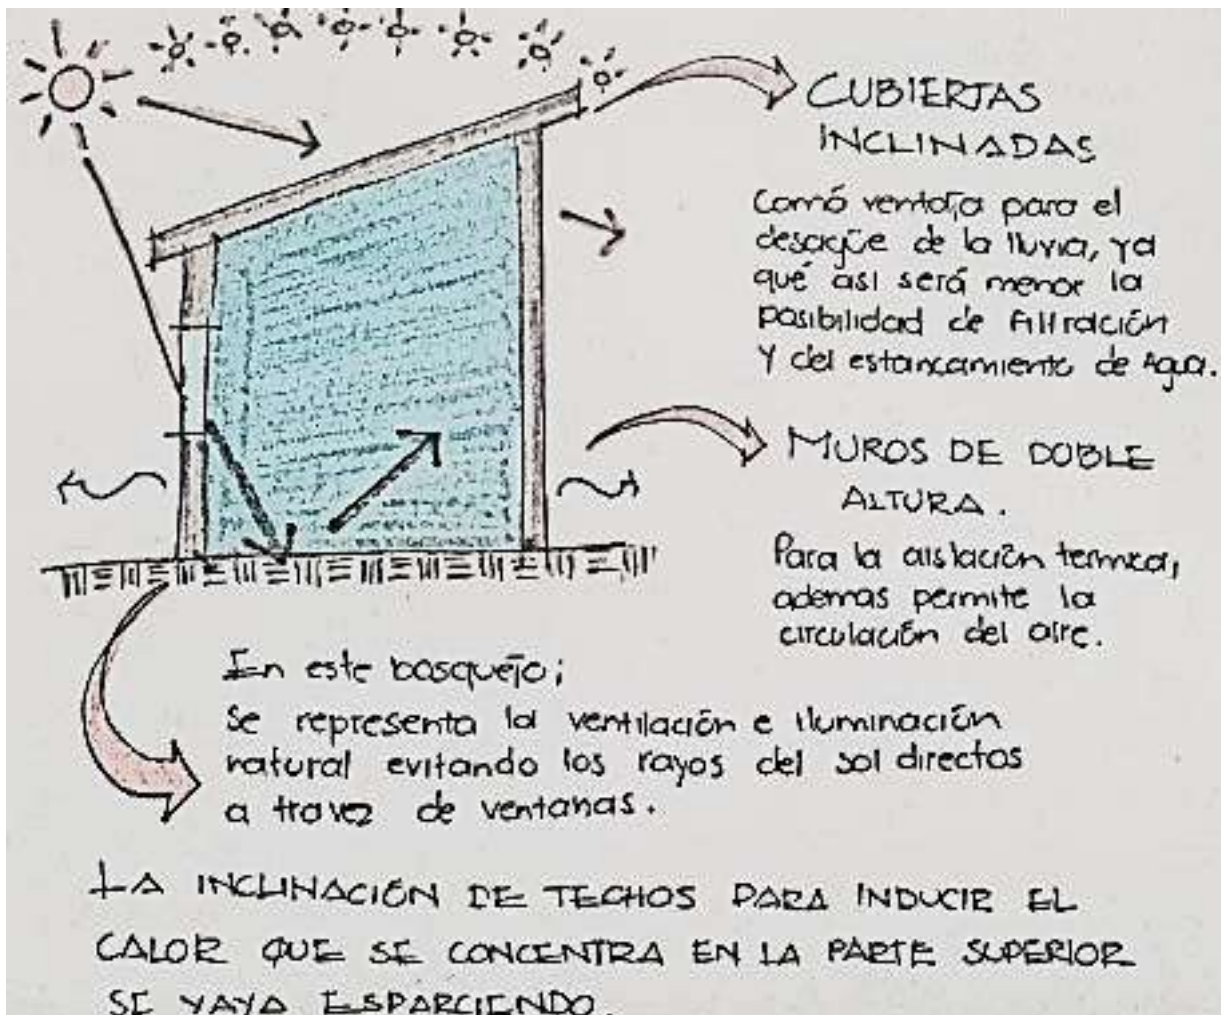 CUBIERTAS
INCLINADAS
Comó ventaja para el
desagüe de la lluvia, ya
qué así será menor la
posibilidad de filtración
Y del estancamiento de Agua.
MUROS DE DOBLE
ALTURA.
Para la aislación termica,
ademas permite la
circulación del aire.
En este bosquejo;
Se representa la ventilación e iluminación
natural evitando los rayos del sol directos
a travez de ventanas.
LA INCLINACIÓN DE TECHOS PARA INDUCIR EL
CALOR QUE SE CONCENTRA EN LA PARTE SUPERIOR
SE VAYA ESPARCIENDO.